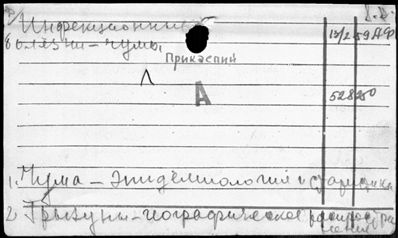 Инфекционные
болезни - чумы
Прикаспий
Л
А
13/2-59
52850
1. Чума - эпидемиология и
2. Грызуны - географическое распростра
нение